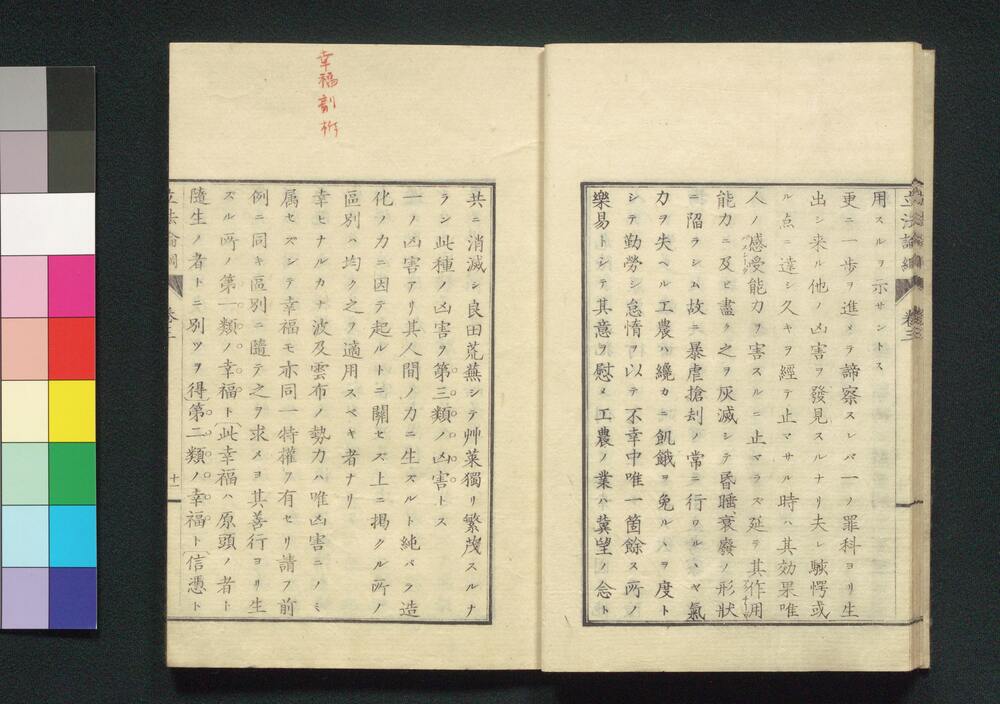 立法論綱 卷三
用スルヲ示サントス
更ニ一歩ヲ進メテ諦察スレバ一ノ罪科ヨリ生
出シ来ル他ノ凶害ヲ發見スルナリ夫レ駭愕或
ル点ニ達シ久キヲ經テ止マサル時ハ其効果唯
人ノ感受能力ヲ害スルニ止マラズ延テ其作用
能力ニ及ビ盡ク之ヲ灰滅シテ昏睡衰廢ノ形狀
ニ陷ラシム故ニ暴虐搶刦ノ常ニ行ワルヽヤ氣
力ヲ失ヘル工農ハ纔カニ飢餓ヲ免ルヽヲ度ト
シテ勤勞シ怠惰ヲ以テ不幸中唯一箇餘ス所ノ
樂易トシテ其意ヲ慰メ工農ノ業ハ冀望ノ念ト
幸福剖析
共ニ消滅シ良田荒蕪シテ艸萊獨リ繁茂スルナ
ラン此種ノ凶害ヲ第三類ノ凶害トス
一ノ凶害アリ其人間ノ力ニ生スルト純パラ造
化ノ力ニ因テ起ルトニ關セズ上ニ掲クル所ノ
區別ハ均ク之ヲ適用スベキ者ナリ
幸ヒナルカナ波及雲布ノ勢力ハ唯凶害ニノミ
属セズンテ幸福モ亦同一特權ヲ有セリ請フ前
例ニ同キ區別ニ隨テ之ヲ求メヨ其善行ヨリ生
ズル所ノ第一類ノ幸福ト(此幸福ハ原頭ノ者ト
隨生ノ者トニ別ツヲ得)第二類ノ幸福ト(信憑ト
立法論綱 卷三 十一